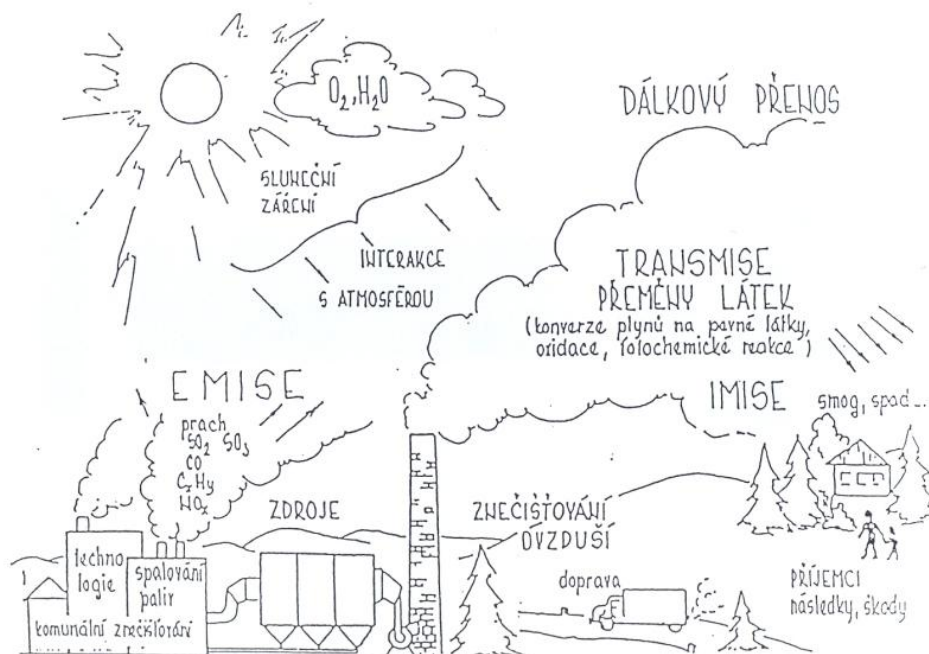 O₂,H₂O
DÁLKOVÝ PŘENOS
SLUNEČNÍ
ZÁŘENÍ
INTERAKCE
S ATMOSFÉROU
TRANSMISE
PŘEMĚNY LÁTEK
(konverze plynů na pevné látky,
oxidace, fotochemické reakce)
EMISE
IMISE
smog, spad...
prach
SO₂ SO₃
CO
CₓHy
NOₓ
ZDROJE
ZNEČIŠŤOVÁNÍ
OVZDUŠÍ
techno
logie
spalování
paliv
komunální znečišťování
doprava
PŘÍJEMCI
následky, škody